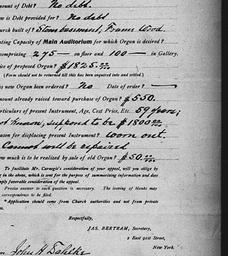 mount of Debt? No debt.
ow is Debt provided for? No debt
urch built of? Stone basement, Frame Wood.
ating Capacity of Main Auditorium for which Organ is desired?
omprising 275 on floor and 100 in Gallery.
ice of proposed Organ? $1825.00
(Form should not be returned till this has been enquired into and settled.)
s new Organ been ordered? No Date of order?
mount already raised toward purchase of Organ? $550.
articulars of present Instrument, Age, Cost Price, Etc. 59 years;
ot known, supposed to be $1800.00
eason for displacing present Instrument? worn out.
Cannot will be repaired
ow much is to be realized by sale of old Organ? $50.00
To facilitate Mr. Carnegie's consideration of your appeal, will you oblige by
in the above, which is sent for the purpose of summarizing information and does
imply favorable consideration of the appeal.
Precise answer to each question is necessary. The leaving of blanks may
correspondence to be filed.
*Application should come from Church authorities and not from private
Respectfully,
JAS. BERTRAM, Secretary,
2 East 91st Street,
New York.
John H Dahlke